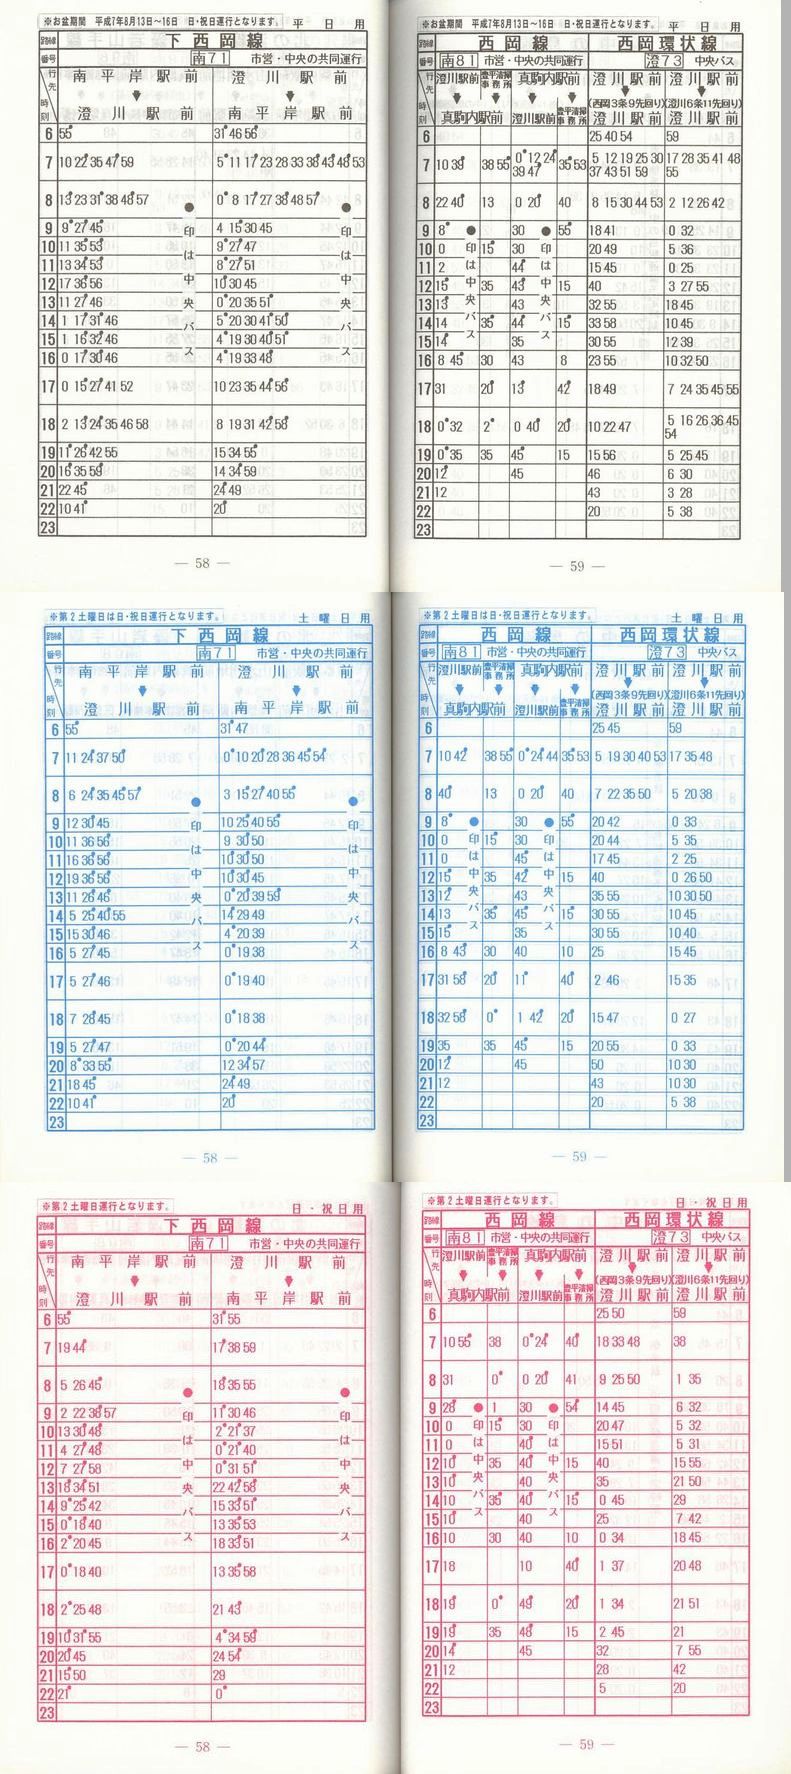 ※お盆期間 平成7年8月13日～16日 日・祝日運行となります。 平日用
下西岡線
番号 南71 市営・中央の共同運行
行先 南平岸駅前 澄川駅前
時刻 澄川駅前 南平岸駅前
6 55 31 46 56
7 10 22 35 47 59 5 11 17 23 28 33 38 43 48 53
8 13 23 31 38 48 57 0 8 17 27 38 48 57
9 9 27 45 4 15 30 45
10 11 35 53 9 27 47
11 13 34 53 8 27 51
12 17 36 56 10 30 45
13 11 27 46 0 20 35 51
14 1 17 31 46 5 20 30 41 50
15 1 16 32 46 4 19 30 40 51
16 0 17 30 46 4 19 33 48
17 0 15 27 41 52 10 23 35 44 56
18 2 13 24 35 46 58 8 19 31 42 58
19 11 26 42 55 15 34 55
20 16 35 59 14 34 59
21 22 45 24 49
22 10 41 20
23
●印は中央バス ●印は中央バス
— 58 —
※お盆期間 平成7年8月13日～16日 日・祝日運行となります。 平日用
西岡線 西岡環状線
番号 南81 市営・中央の共同運行 澄73 中央バス
行先 澄川駅前 豊平清掃事務所 真駒内駅前 澄川駅前 澄川駅前
(西岡3条9先回り) (澄川6条11先回り)
時刻 真駒内駅前 澄川駅前 豊平清掃事務所 澄川駅前 澄川駅前
6 25 40 54 59
7 10 39 38 55 0 12 24 39 47 35 53 5 12 19 25 30 37 43 51 59 17 28 35 41 48 55
8 22 40 13 0 20 40 8 15 30 44 53 2 12 26 42
9 8 30 55 18 41 0 32
10 0 15 30 20 49 5 36
11 2 44 15 45 0 25
12 15 35 43 15 40 3 27 55
13 13 43 32 55 18 45
14 14 35 44 15 33 58 10 45
15 14 35 30 55 12 39
16 8 45 30 43 8 23 55 10 32 50
17 31 20 13 42 18 49 7 24 35 45 55
18 0 32 2 0 40 20 10 22 47 5 16 26 36 45 54
19 0 35 35 45 15 15 56 5 25 45
20 12 45 46 6 30
21 12 43 3 28
22 20 5 38
23
●印は中央バス ●印は中央バス
— 59 —
※第2土曜日は日・祝日運行となります。 土曜日用
下西岡線
番号 南71 市営・中央の共同運行
行先 南平岸駅前 澄川駅前
時刻 澄川駅前 南平岸駅前
6 55 31 47
7 11 24 37 50 0 10 20 28 36 45 54
8 6 24 35 45 57 3 15 27 40 55
9 12 30 45 10 25 40 55
10 11 36 56 9 30 50
11 16 36 56 10 30 50
12 19 36 56 10 30 45
13 11 26 46 0 20 39 59
14 5 25 40 55 14 29 49
15 15 30 46 4 20 39
16 5 27 45 0 19 38
17 5 27 46 0 19 40
18 7 28 45 0 18 38
19 5 27 47 0 20 44
20 8 33 55 12 34 57
21 18 45 24 49
22 10 41 20
23
●印は中央バス ●印は中央バス
— 58 —
※第2土曜日は日・祝日運行となります。 土曜日用
西岡線 西岡環状線
番号 南81 市営・中央の共同運行 澄73 中央バス
行先 澄川駅前 豊平清掃事務所 真駒内駅前 澄川駅前 澄川駅前
(西岡3条9先回り) (澄川6条11先回り)
時刻 真駒内駅前 澄川駅前 豊平清掃事務所 澄川駅前 澄川駅前
6 25 45 59
7 10 42 38 55 0 24 44 35 53 5 19 30 40 53 17 35 48
8 40 13 0 20 40 7 22 35 50 5 20 38
9 8 30 55 20 42 0 33
10 0 15 30 20 44 5 35
11 0 45 17 45 2 25
12 15 35 42 15 40 0 26 50
13 12 43 35 55 10 30 50
14 13 35 45 15 30 55 10 45
15 15 35 30 55 10 40
16 8 43 30 40 10 25 15 45
17 31 58 20 11 40 2 46 15 35
18 32 58 0 1 42 20 15 47 0 27
19 35 35 45 15 20 55 0 33
20 12 45 50 10 30
21 12 43 10 30
22 20 5 38
23
●印は中央バス ●印は中央バス
— 59 —
※第2土曜日運行となります。 日・祝日用
下西岡線
番号 南71 市営・中央の共同運行
行先 南平岸駅前 澄川駅前
時刻 澄川駅前 南平岸駅前
6 55 31 55
7 19 44 17 38 59
8 5 26 45 18 35 55
9 2 22 38 57 11 30 46
10 13 30 48 2 21 37
11 4 27 48 0 21 40
12 7 27 58 0 31 51
13 18 34 51 22 42 58
14 9 25 42 15 33 51
15 0 18 40 13 35 53
16 2 20 45 18 33 51
17 0 18 40 13 35 58
18 2 25 48 21 43
19 10 31 55 4 34 59
20 20 45 24 54
21 15 50 29
22 21 0
23
●印は中央バス ●印は中央バス
— 58 —
※第2土曜日運行となります。 日・祝日用
西岡線 西岡環状線
番号 南81 市営・中央の共同運行 澄73 中央バス
行先 澄川駅前 豊平清掃事務所 真駒内駅前 澄川駅前 澄川駅前
(西岡3条9先回り) (澄川6条11先回り)
時刻 真駒内駅前 澄川駅前 豊平清掃事務所 澄川駅前 澄川駅前
6 25 50 59
7 10 55 38 0 24 40 18 33 48 38
8 31 0 20 41 9 25 50 1 35
9 28 1 30 54 14 45 6 32
10 0 15 30 20 47 5 32
11 0 40 15 51 5 31
12 10 35 40 15 40 15 55
13 10 40 35 21 50
14 10 35 40 15 0 45 29
15 10 40 25 7 42
16 10 30 40 10 0 34 18 45
17 18 10 40 1 37 20 48
18 19 0 49 20 1 34 21 51
19 19 35 48 15 2 45 21
20 14 45 32 7 55
21 12 28 42
22 5 20
23
●印は中央バス ●印は中央バス
— 59 —